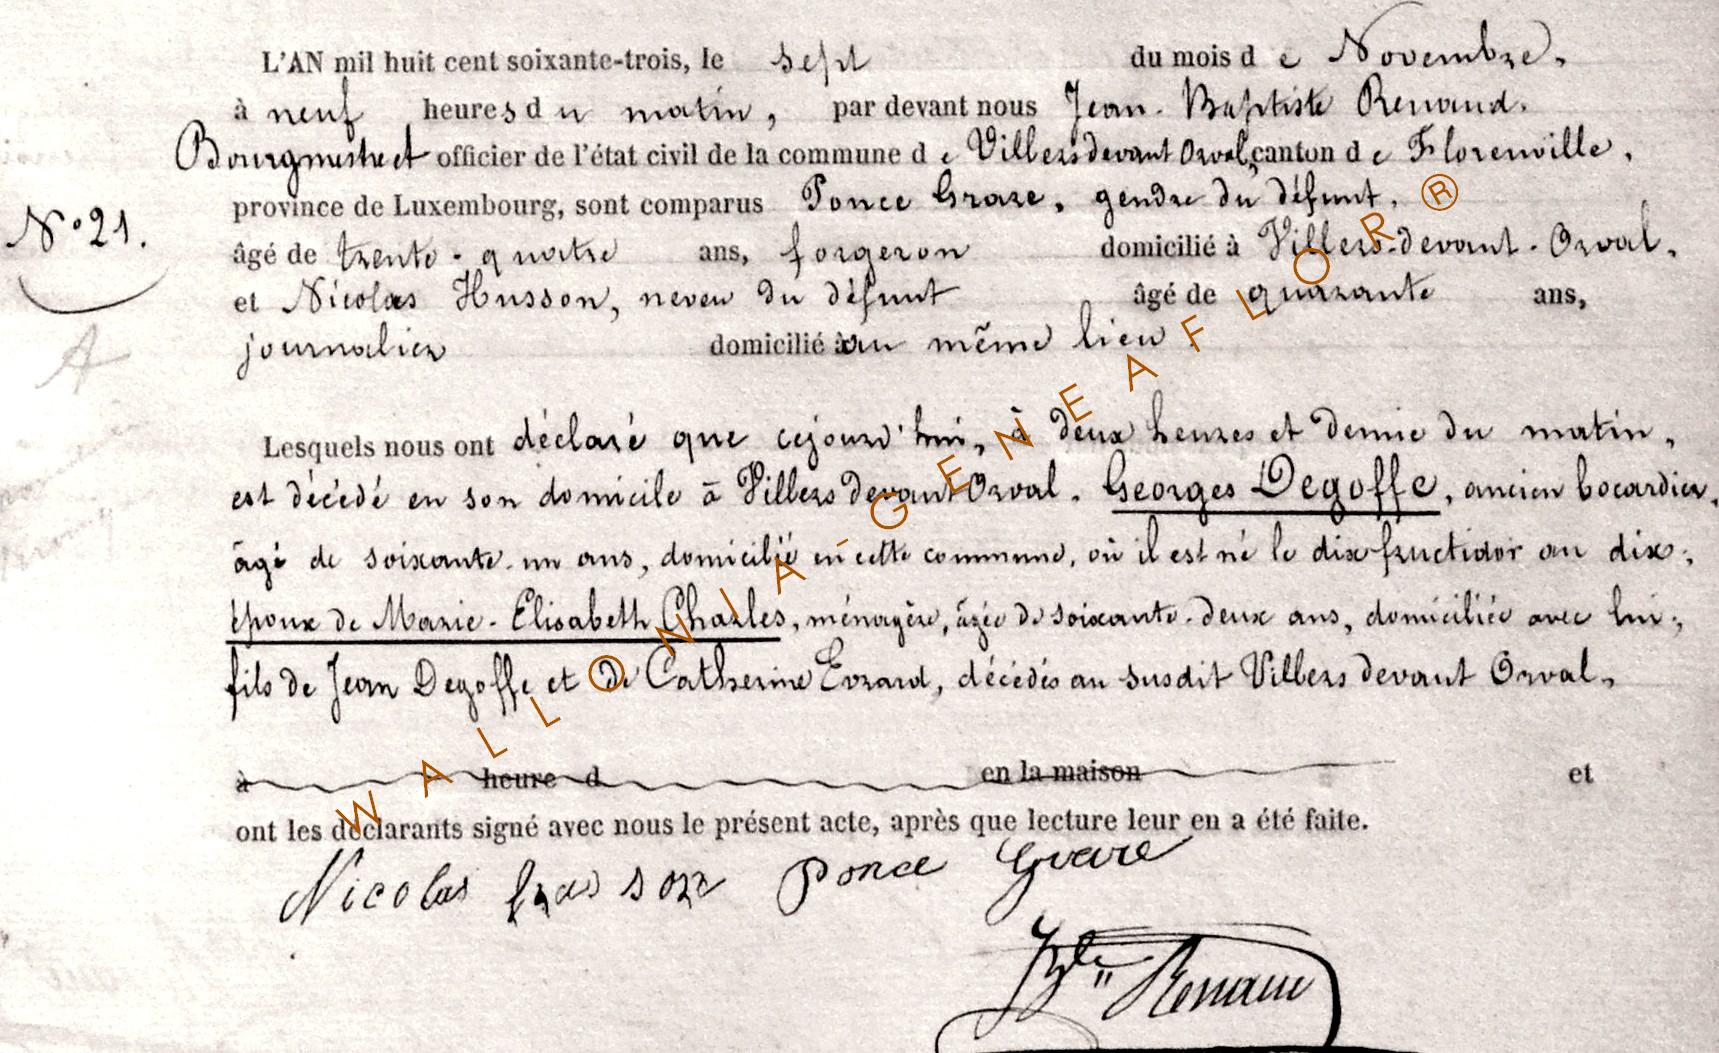 L'AN mil huit cent soixante-trois, le sept du mois de Novembre,
à neuf heures du matin, par devant nous Jean-Baptiste Renaud.
Bourgmestre et officier de l'état civil de la commune de Villers devant Orval, canton de Florenville,
province de Luxembourg, sont comparus Ponce Graze, gendre du défunt,
N° 21.
âgé de trente-quatre ans, forgeron domicilié à Villers-devant-Orval,
et Nicolas Husson, neveu du défunt âgé de quarante ans,
journalier domicilié au même lieu
A
Lesquels nous ont déclaré que cejourd'hui, à deux heures et demie du matin,
est décédé en son domicile à Villers devant Orval, Georges Degoffe, ancien bocardier,
âgé de soixante-un ans, domicilié en cette commune, où il est né le dix fructidor an dix;
époux de Marie-Elisabeth Charles, ménagère, âgée de soixante-deux ans, domiciliée avec lui;
fils de Jean Degoffe et de Catherine Evrard, décédés au susdit Villers devant Orval,
à heure d en la maison et
ont les déclarants signé avec nous le présent acte, après que lecture leur en a été faite.
Nicolas Ponce
Renaud
WALLONIA-GENEAFLOR®